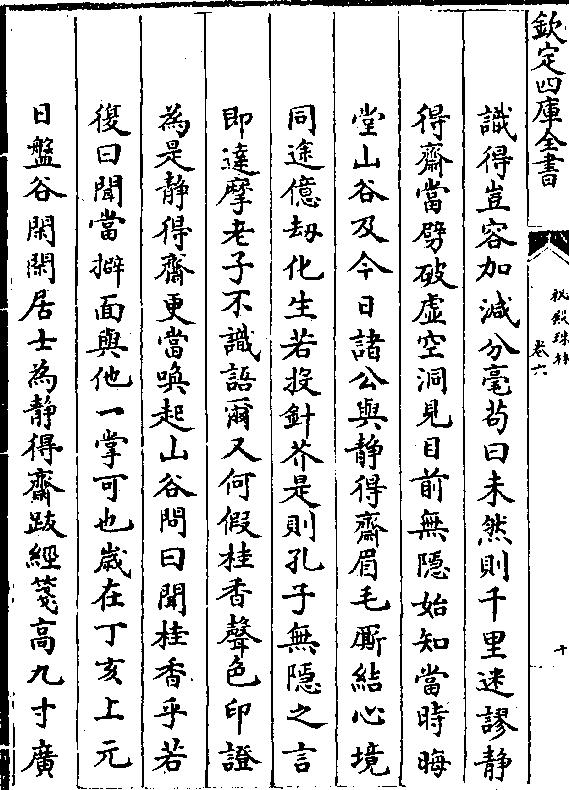 欽定四庫全書
秘殿珠林
卷六
十
識得豈容加減分毫茍曰未然則千里迷謬静
得齋當劈破虚空洞見目前無隠始知當時晦
堂山谷及今日諸公與静得齋眉毛厮結心境
同途億劫化生若投針芥是則孔子無隠之言
即達摩老子不識語爾又何假桂香聲色印證
為是静得齋更當喚起山谷問曰聞桂香乎若
復曰聞當擗面與他一掌可也嵗在丁亥上元
日盤谷閑閑居士為静得齋跋經箋高九寸廣